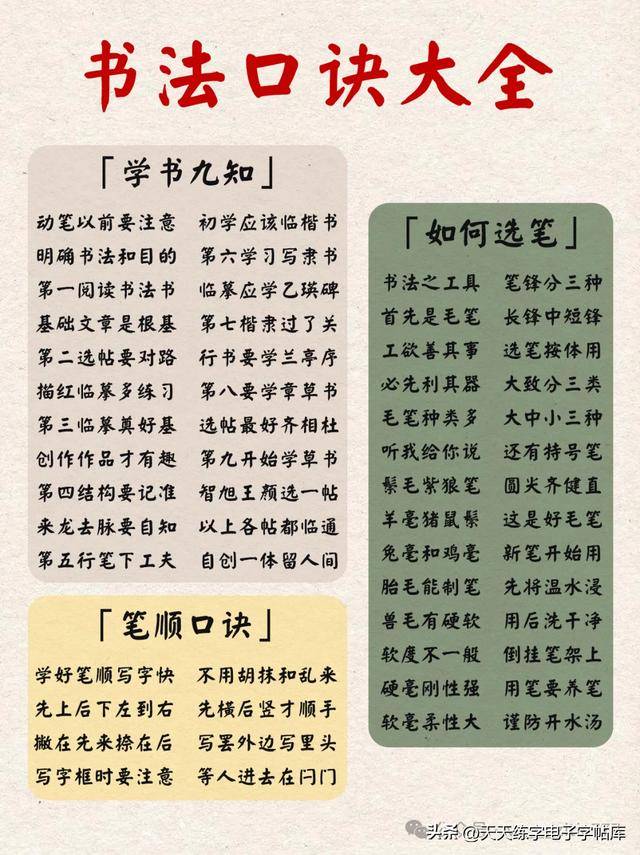 书法口诀大全
「学书九知」
动笔以前要注意
明确书法和目的
第一阅读书法书
基础文章是根基
第二选帖要对路
描红临摹多练习
第三临摹奠好基
创作作品才有趣
第四结构要记准
来龙去脉要自知
第五行笔下工夫
初学应该临楷书
第六学习写隶书
临摹应学乙瑛碑
第七楷隶过了关
行书要学兰亭序
第八要学章草书
选帖最好齐相杜
第九开始学草书
智旭王颜选一帖
以上各帖都临通
自创一体留人间
「笔顺口诀」
学好笔顺写字快 不用胡抹和乱来
先上后下左到右 先横后竖才顺手
撇在先来捺在后 写罢外边写里头
写字框时要注意 等人进去在闩门
「如何选笔」
书法之工具
首先是毛笔
工欲善其事
必先利其器
毛笔种类多
听我给你说
鬃毛紫狼笔
羊毫猪鼠鬃
兔毫和鸡毫
胎毛能制笔
兽毛有硬软
软度不一般
硬毫刚性强
软毫柔性大
笔锋分三种
长锋中短锋
选笔按体用
大致分三类
大中小三种
还有持号笔
圆尖齐健直
这是好毛笔
新笔开始用
先将温水浸
用后洗干净
倒挂笔架上
用笔要养笔
谨防开水汤
头条 @天天练字电子字帖库